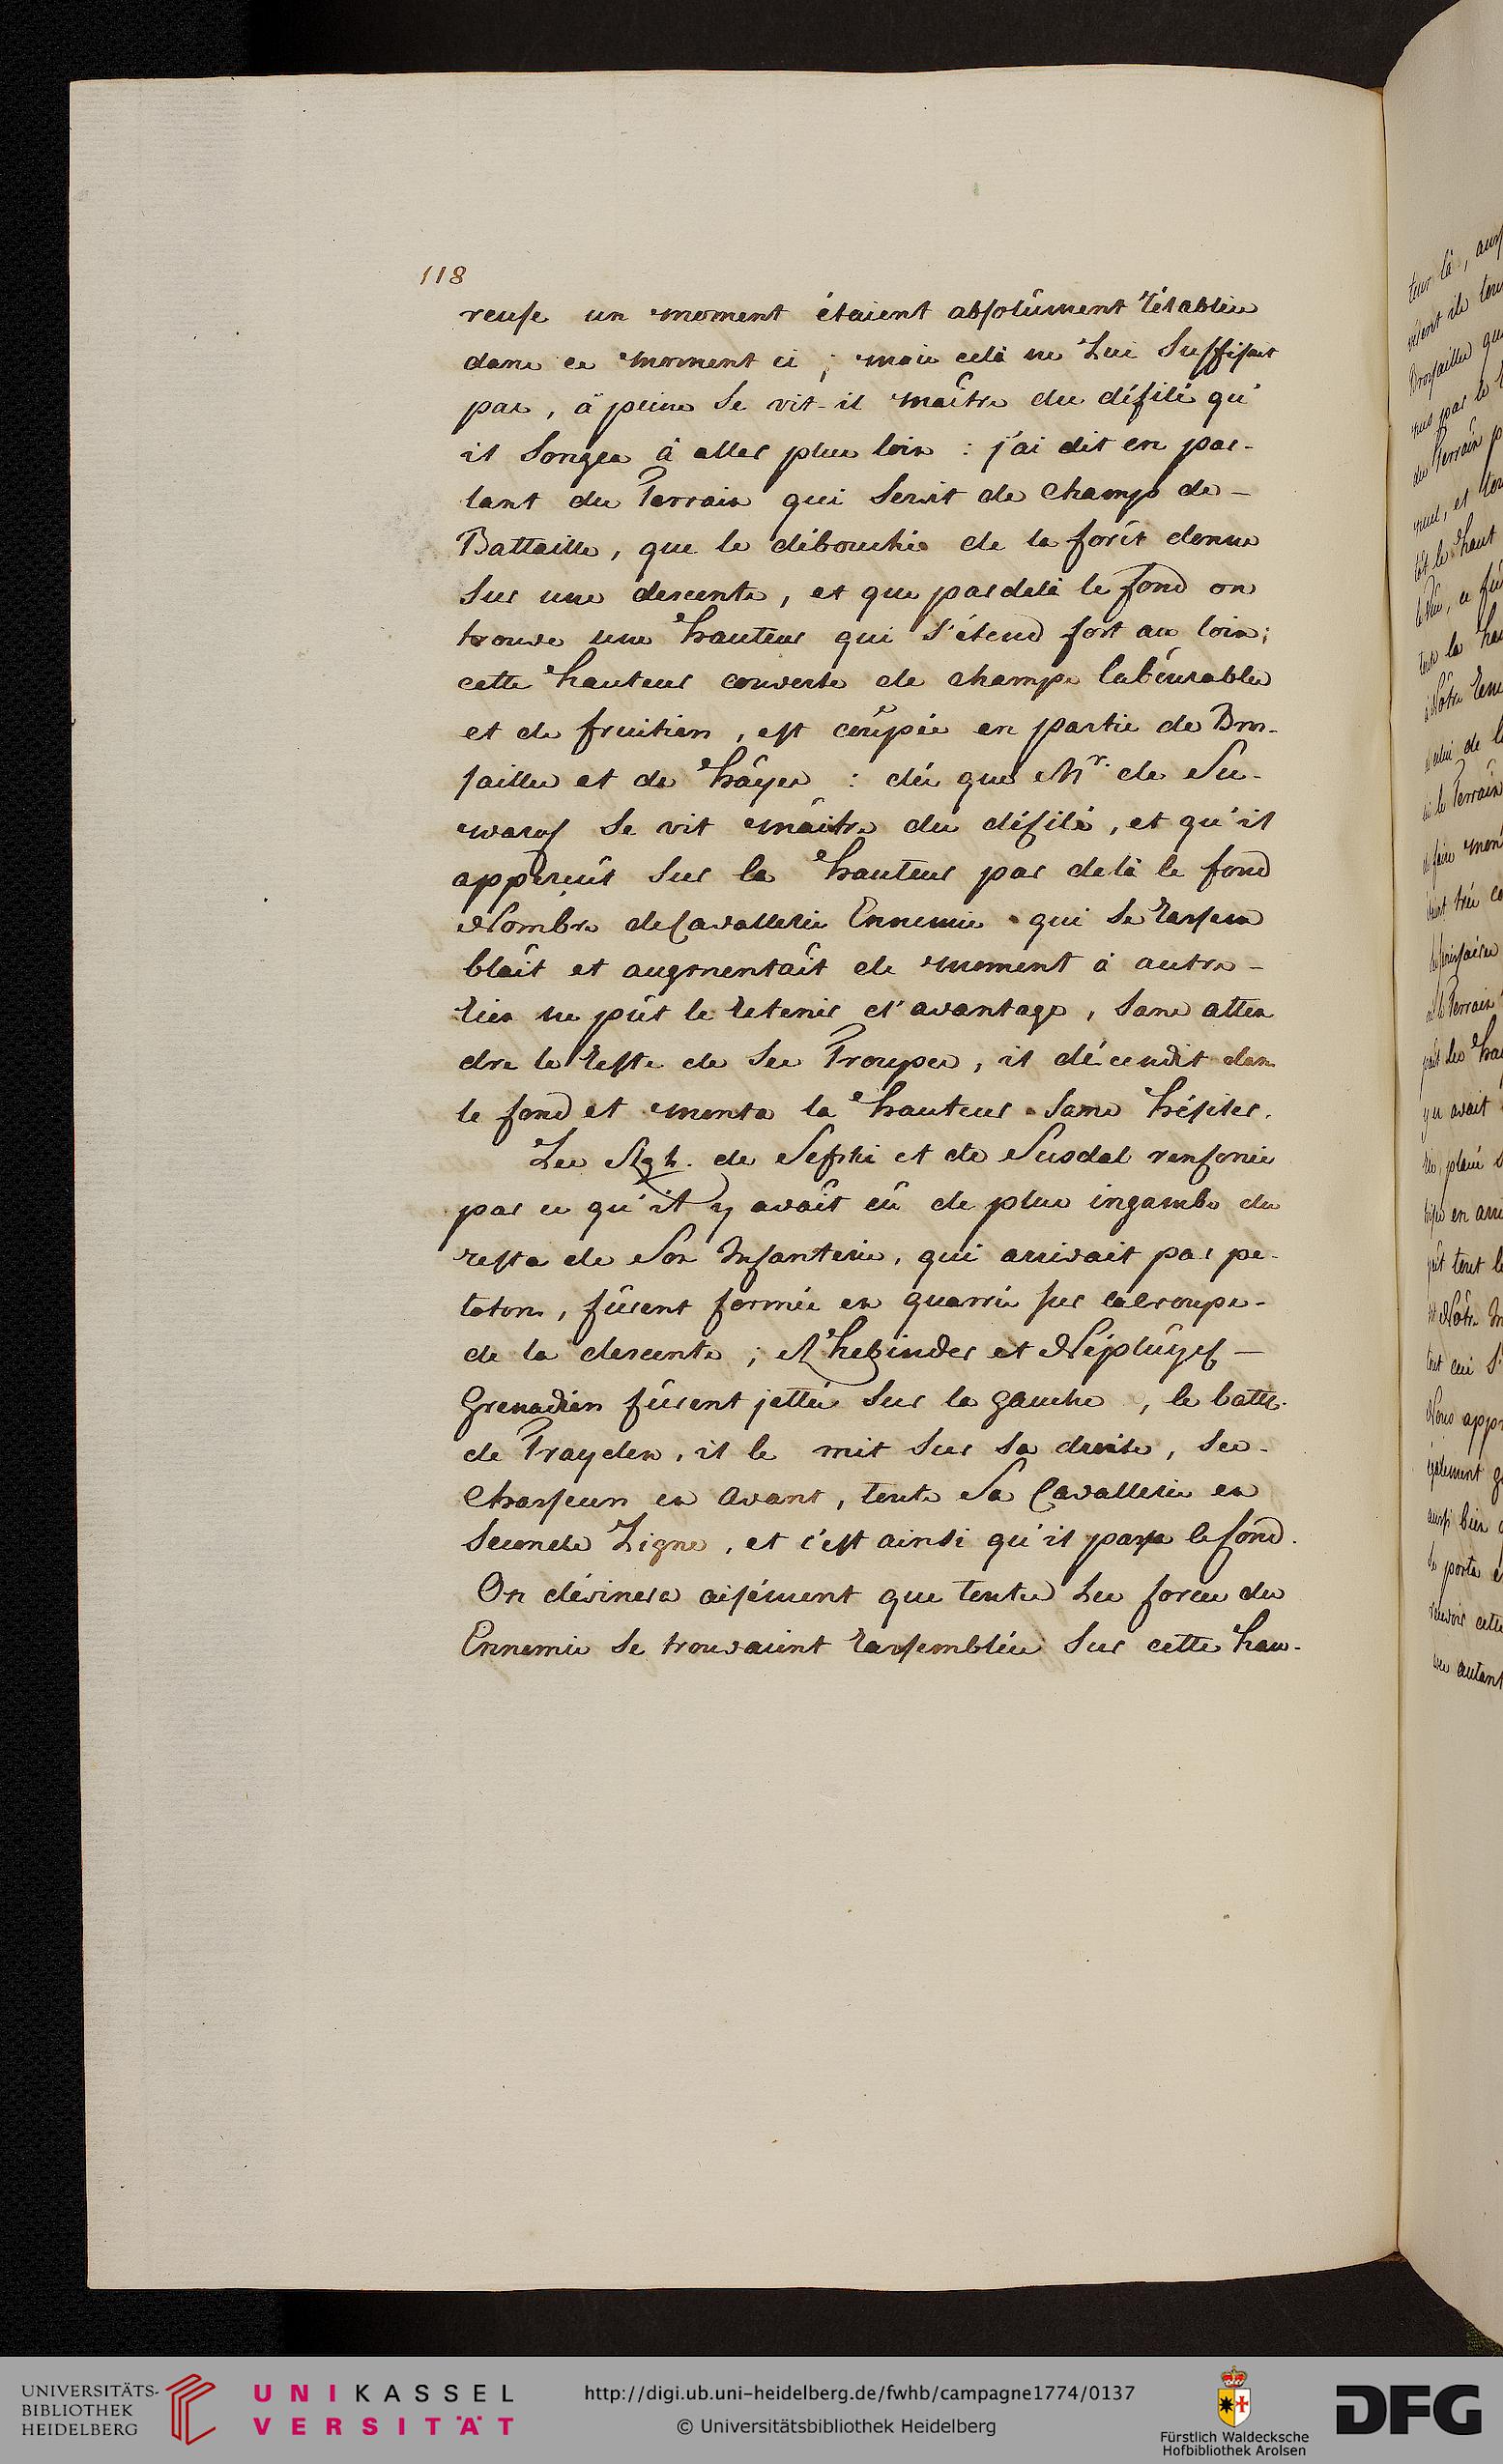 118
reuse un moment étaient absolûment rétablies
dans ce moment ci ; mais celà ne Lui Suffisait
pas, à peine Se vit-il maître du défilé qu'
il Songea à aller plus loin : j'ai dit en par-
lant du Terrain qui Servit de Champ de -
Battaille, que le débouchée de la forêt donne
Sur une descente, et que pardelà le fond on
trouve une hauteur qui S'étend fort au loin;
cette hauteur couverte de champs labourables
et de fruitiers, est coûpée en partie de Bros-
sailles et de hâyes : dès que Mr. de Su-
warof Se vit maître du défilé, et qu'il
apperçût Sur la hauteur par delà le fond
Nombre de Cavallerie Ennemie qui Se rassem
blait et augmentait de moment à autre -
rien ne pût le retenir d'avantage, Sans atten
dre le reste de Ses Troupes, il décendit dans
le fond et monta la hauteur Sans hésiter.
Les Rgts. de Sefski et de Susdal renforcés
par ce qu'il y avait eû de plus ingambe du
reste de Son Infanterie, qui arrivait par pe-
lotons, fûrent formés en quarrés sur la croupe -
de la descente ; Rhebinder et Néplûyef -
Grenadiers fûrent jettés Sur la gauche, le batts.
de Trayden, il le mit Sur Sa droite, Ses -
Chasseurs en avant, toute Sa Cavallerie en
Seconde Ligne, et c'est ainsi qu'il passa le fond.
On dévinera aisément que toutes Les forces des
Ennemis Se trouvaient rassemblées Sur cette hau-
UNIVERSITÄTS-
BIBLIOTHEK
HEIDELBERG
UNIKASSEL
VERSITÄT
http://digi.ub.uni-heidelberg.de/fwhb/campagne1774/0137
© Universitätsbibliothek Heidelberg
Fürstlich Waldecksche
Hofbibliothek Arolsen
DFG